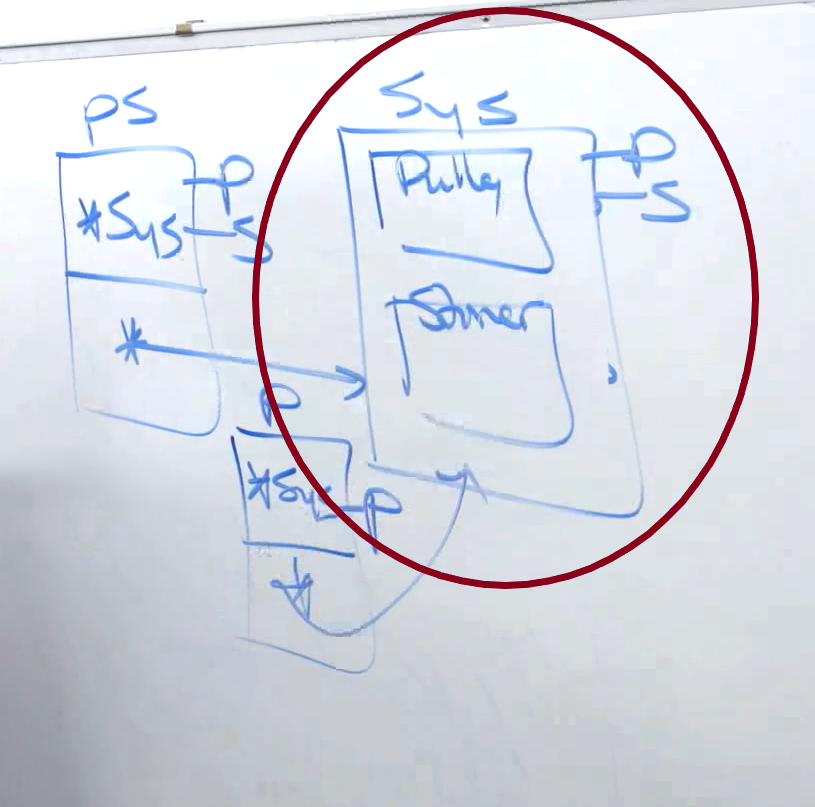 PS
*Sys
P
S
*
Sys
Puller
Storer
P
S
P
*Sys
P